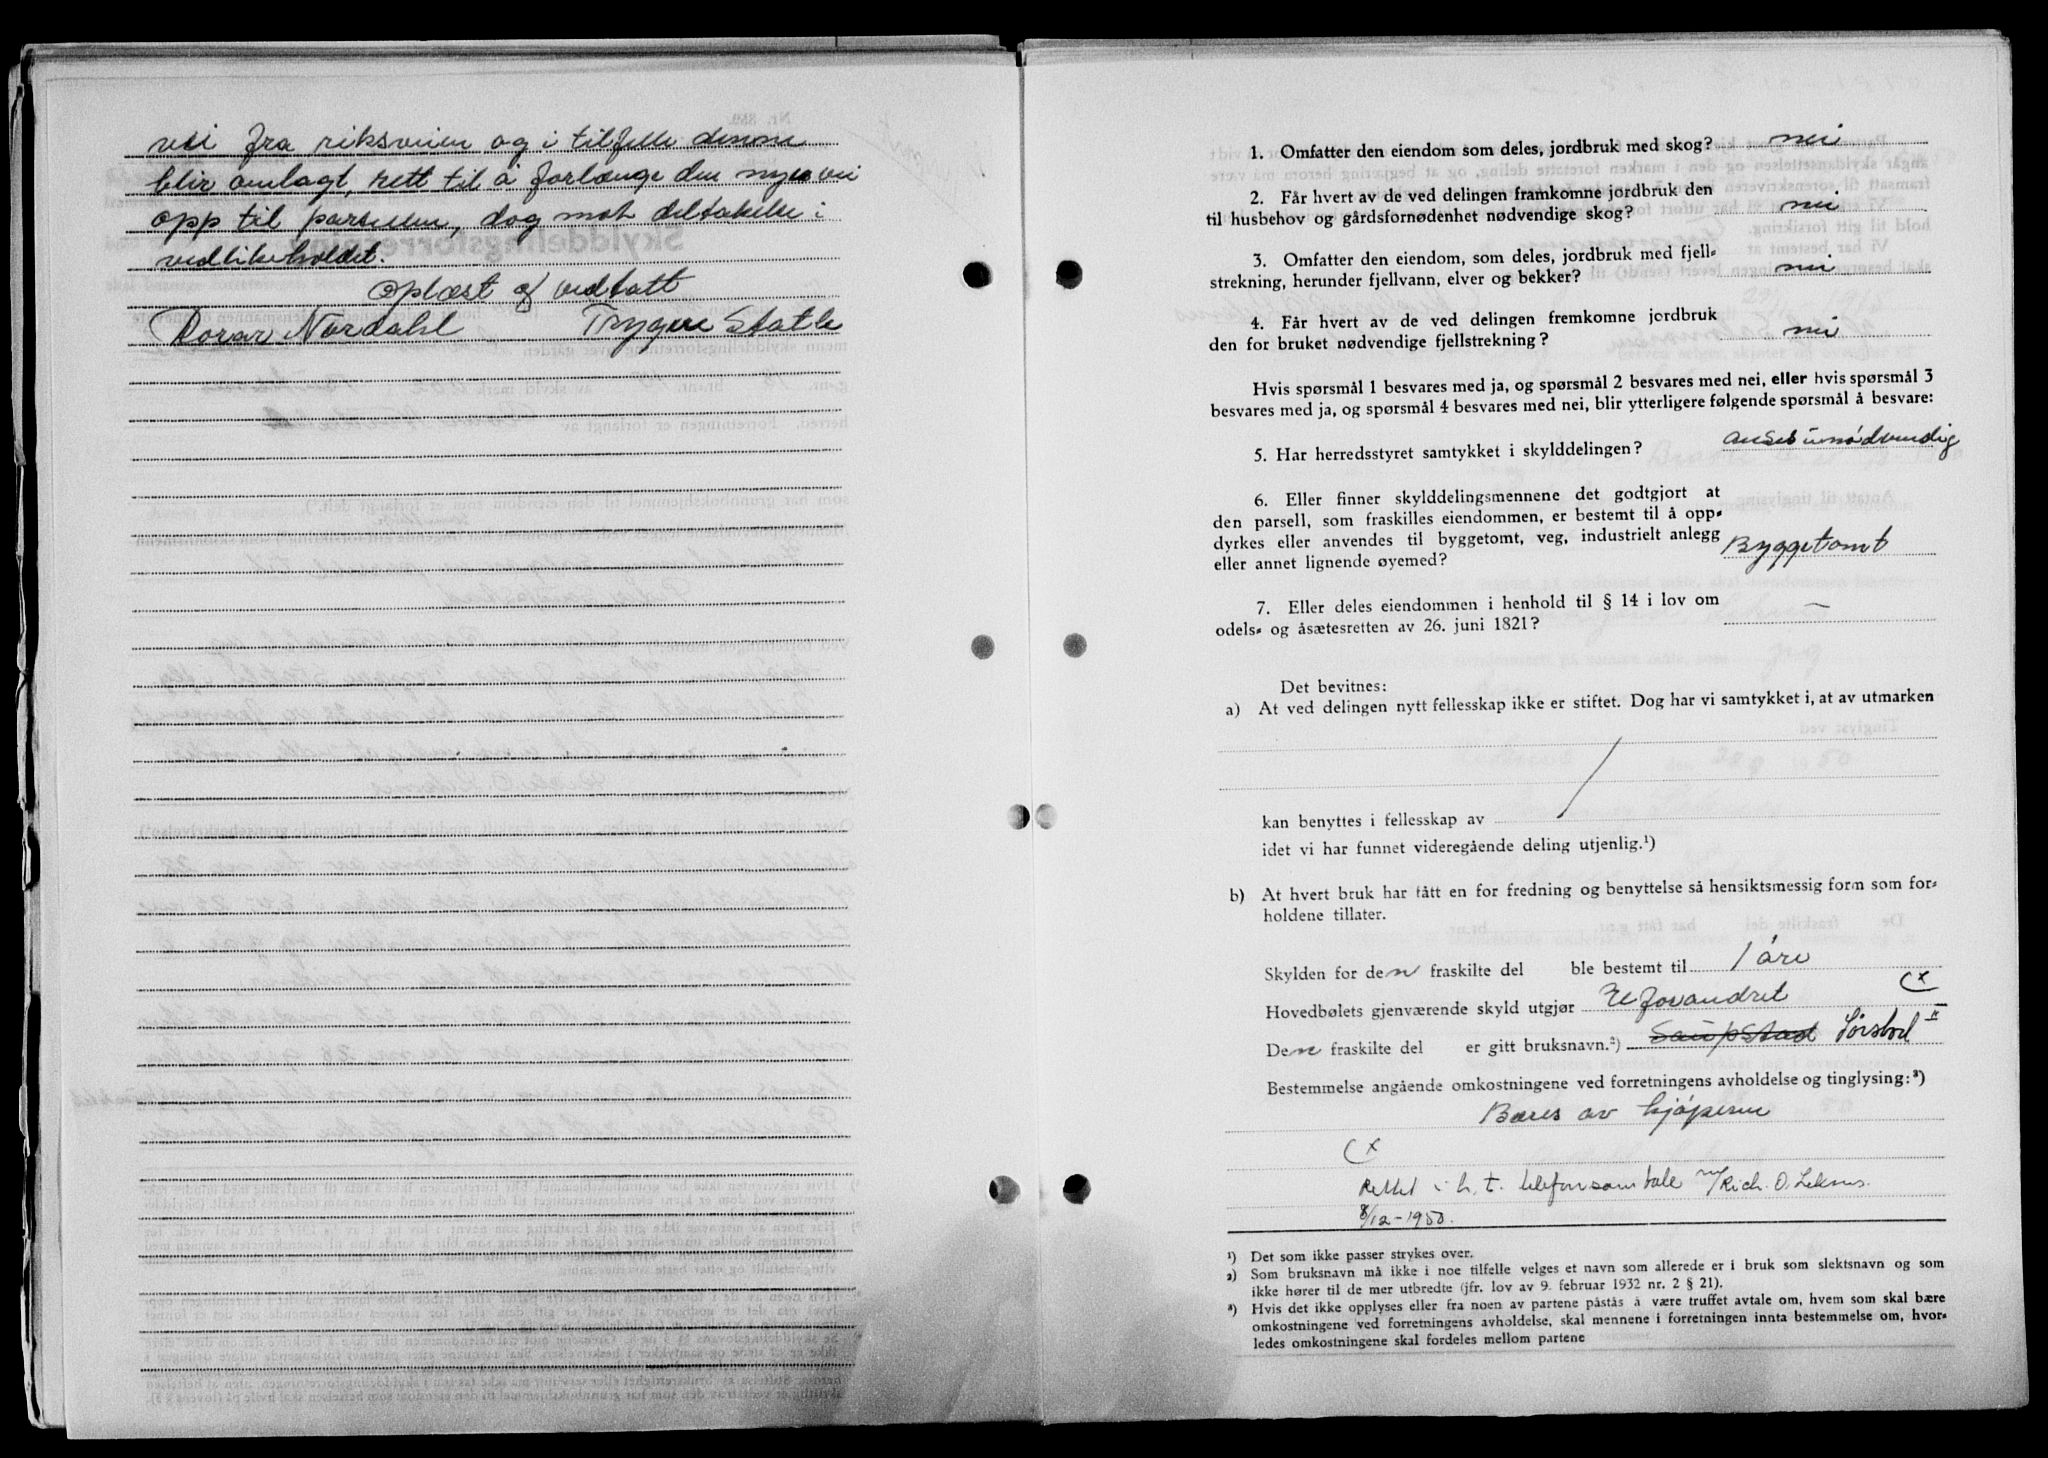 vei fra riksveien og i tilfelle denne
blir omlagt, rett til å forlænge den nye vei
opp til parsellen, dog mot deltakelse i
vedlikeholdet.
Oplæst og vedtatt
Rovar Nordahl Trygve Statle
1. Omfatter den eiendom som deles, jordbruk med skog? nei
2. Får hvert av de ved delingen framkomne jordbruk den
til husbehov og gårdsfornødenhet nødvendige skog? nei
3. Omfatter den eiendom, som deles, jordbruk med fjell-
strekning, herunder fjellvann, elver og bekker? nei
4. Får hvert av de ved delingen fremkomne jordbruk
den for bruket nødvendige fjellstrekning? nei
Hvis spørsmål 1 besvares med ja, og spørsmål 2 besvares med nei, eller hvis spørsmål 3
besvares med ja, og spørsmål 4 besvares med nei, blir ytterligere følgende spørsmål å besvare:
5. Har herredsstyret samtykket i skylddelingen? anses unødvendig
6. Eller finner skylddelingsmennene det godtgjort at
den parsell, som fraskilles eiendommen, er bestemt til å opp-
dyrkes eller anvendes til byggetomt, veg, industrielt anlegg
eller annet lignende øyemed? Byggetomt
7. Eller deles eiendommen i henhold til § 14 i lov om
odels- og åsætesretten av 26. juni 1821? —
Det bevitnes:
a) At ved delingen nytt fellesskap ikke er stiftet. Dog har vi samtykket i, at av utmarken
kan benyttes i fellesskap av
idet vi har funnet videregående deling utjenlig.¹)
b) At hvert bruk har fått en for fredning og benyttelse så hensiktsmessig form som for-
holdene tillater.
Skylden for den fraskilte del ble bestemt til 1 øre
Hovedbølets gjenværende skyld utgjør Uforandret (x
Den fraskilte del er gitt bruksnavn.²) Saupstad Sørstad II
Bestemmelse angående omkostningene ved forretningens avholdelse og tinglysing:³)
Bæres av kjøperne
(x
Rettet i h. t. telefonsamtale m/Rich. O. Leknes.
8/12-1950.
¹) Det som ikke passer strykes over.
²) Som bruksnavn må ikke i noe tilfelle velges et navn som allerede er i bruk som slektsnavn og som
ikke hører til de mer utbredte (jfr. lov av 9. februar 1932 nr. 2 § 21).
³) Hvis det ikke opplyses eller fra noen av partene påstås å være truffet avtale om, hvem som skal bære
omkostningene ved forretningens avholdelse, skal mennene i forretningen innta bestemmelse om, hvor-
ledes omkostningene skal fordeles mellom partene